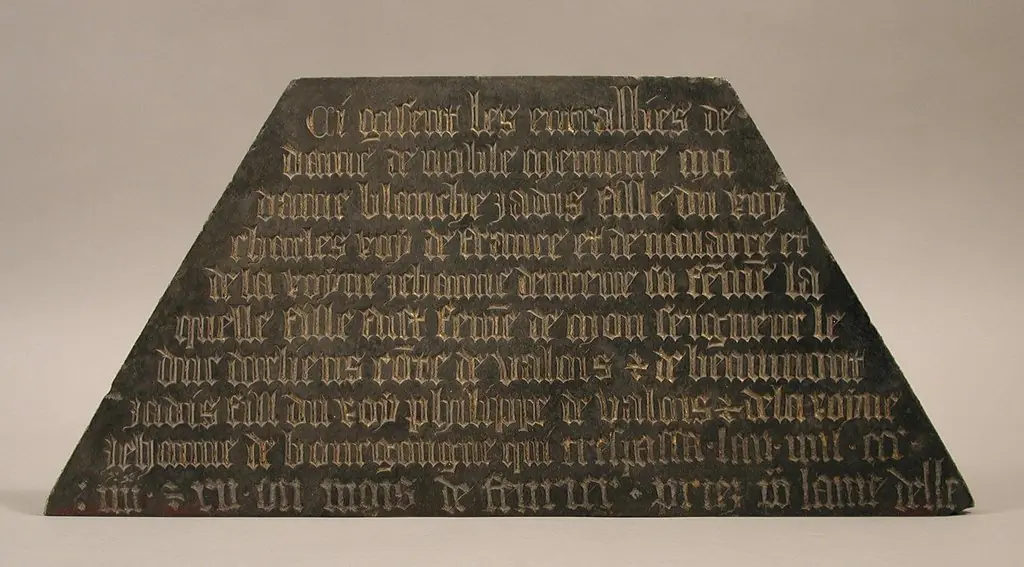 Ci gisent les entrailles de
dame de noble memoire ma
dame blanche jadis fille du roy
charles roy de france et de navarre et
de la royne jehanne devreux sa fēme la
quelle fille fust fēme de mon seigneur le
duc dorliens cōte de valois et de beaumont
jadis fill du roy philippe de valois et de la royne
jehanne de bourgoingne qui trespassa lan mil
ou mois de fevrier priez lame delle